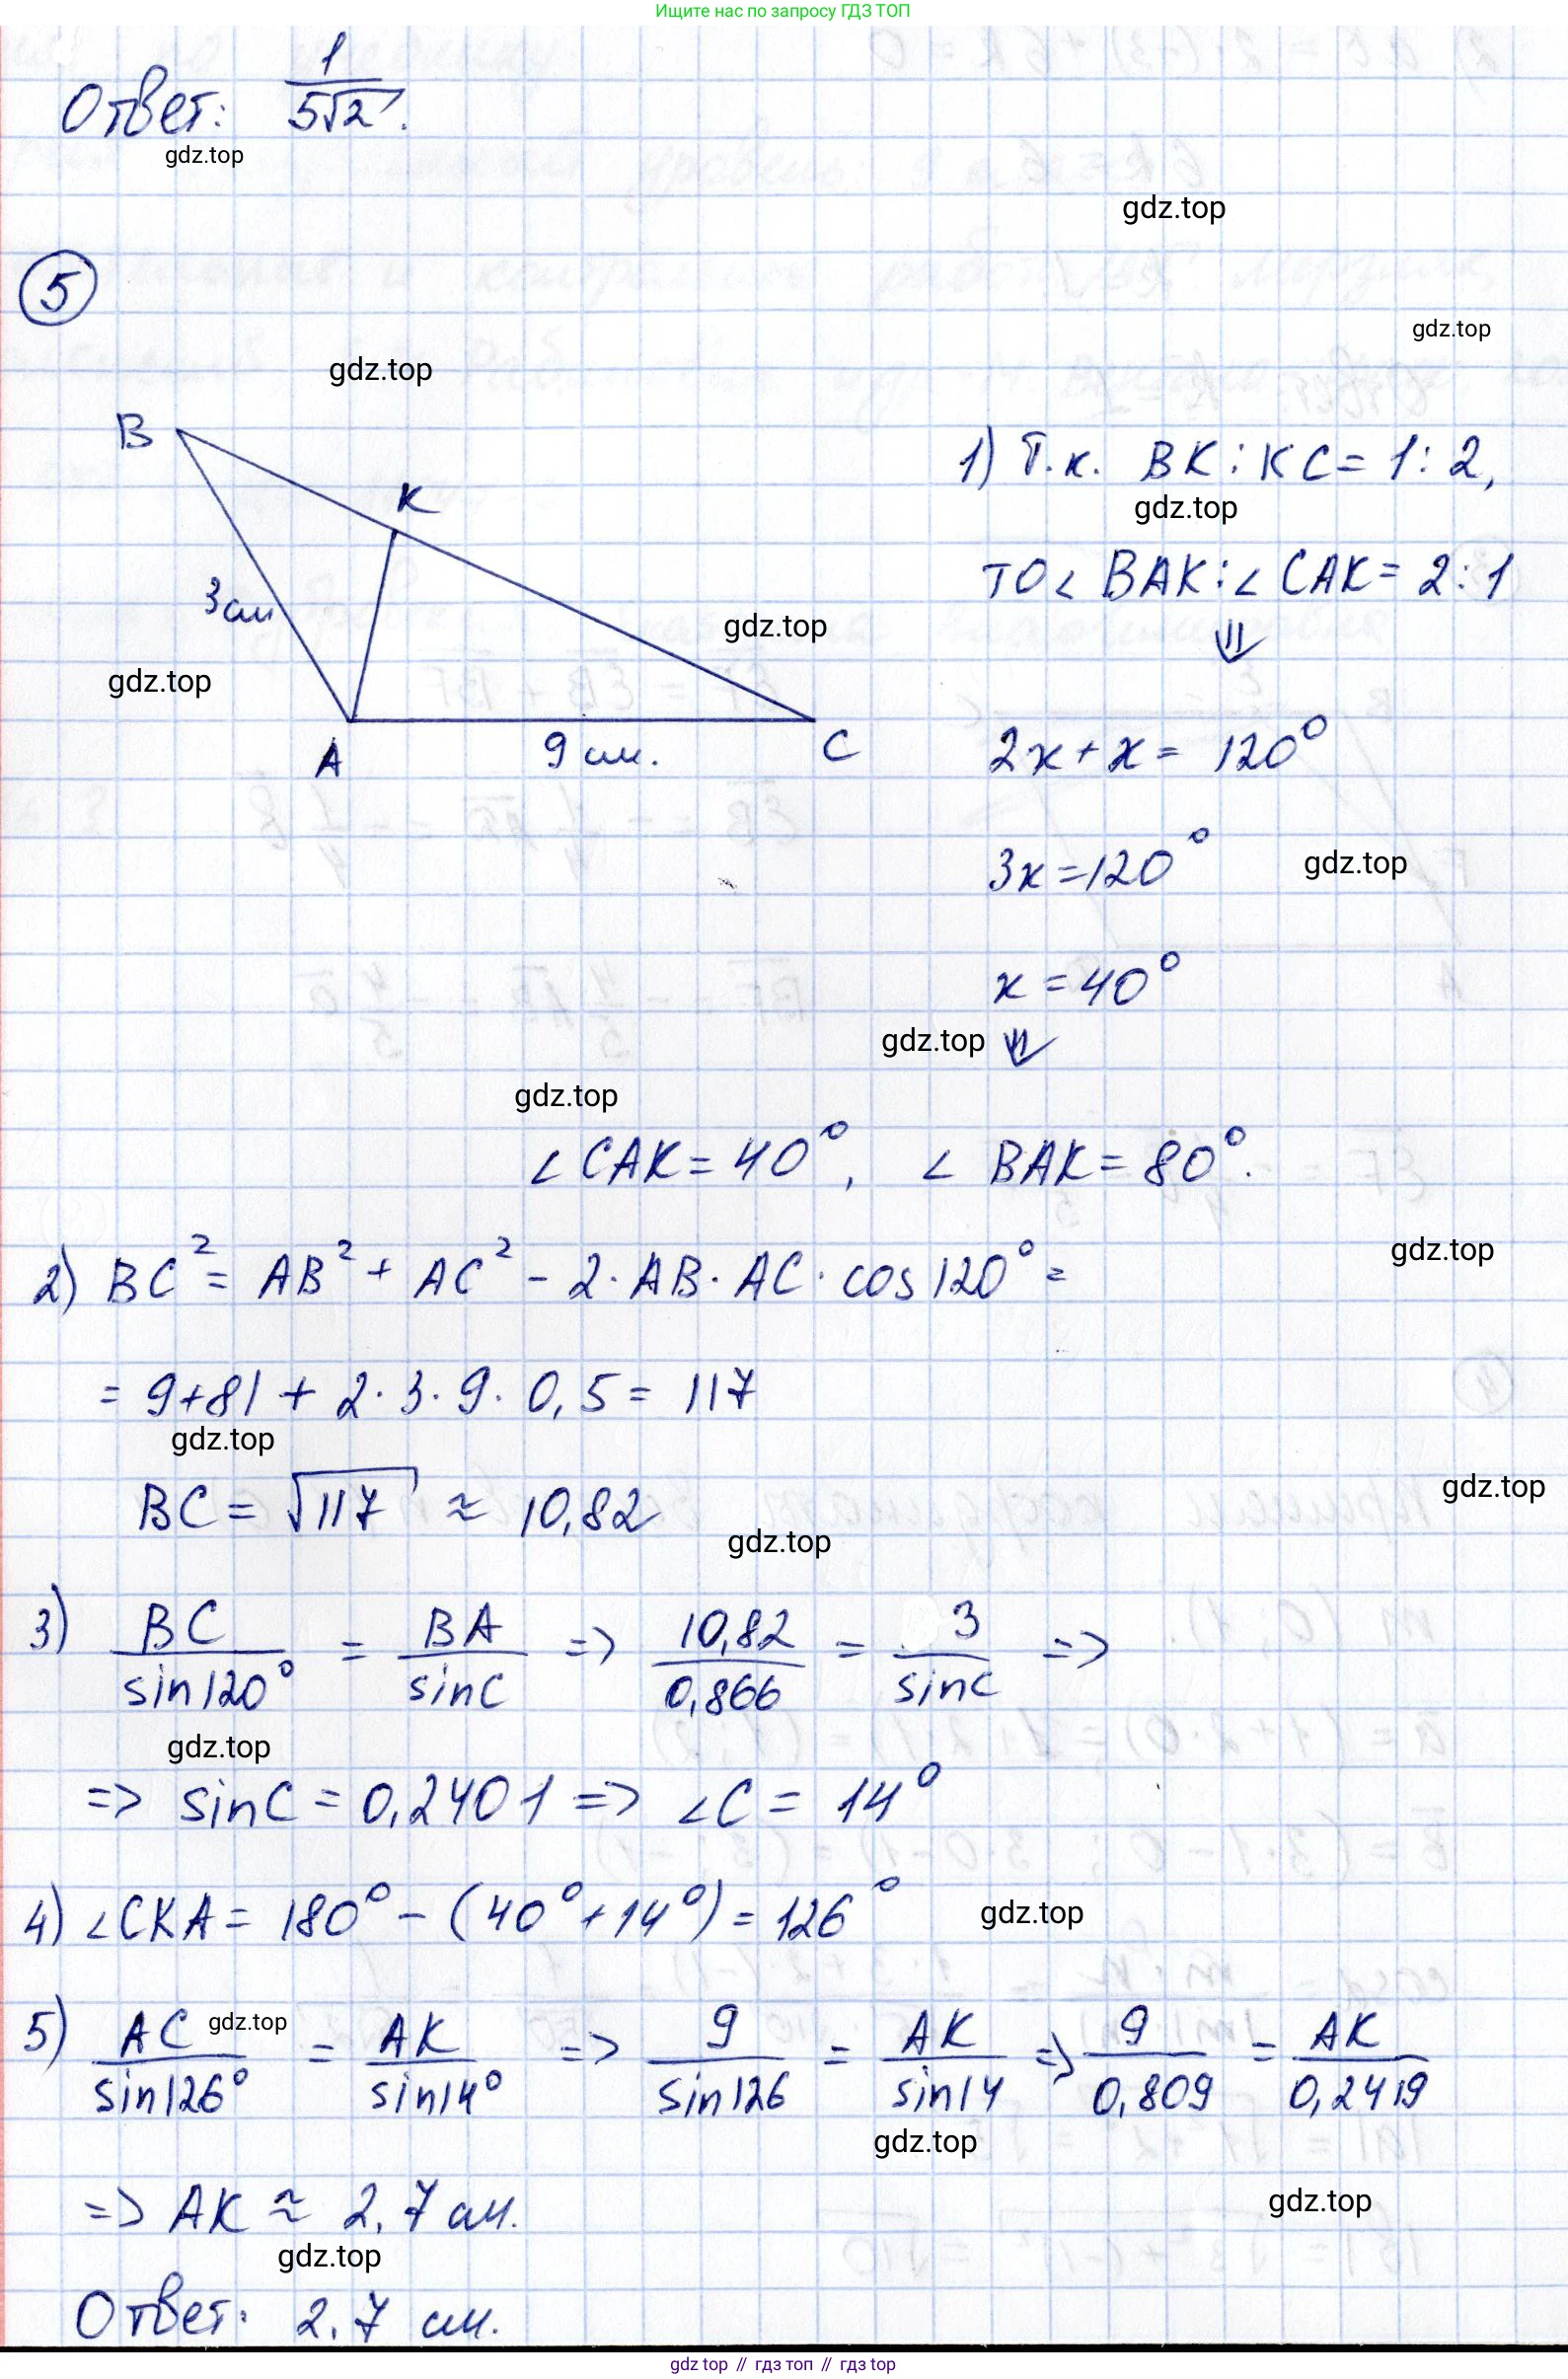 Ищите нас по запросу ГДЗ ТОП
Ответ: 1/(5√2).
gdz.top
gdz.top
5
gdz.top
gdz.top
B
K
1) Т.к. BK : KC = 1 : 2,
gdz.top
то ∠ BAK : ∠ CAK = 2 : 1
3 см
gdz.top
⇓
gdz.top
A
9 см.
C
2x + x = 120°
3x = 120°
gdz.top
x = 40°
gdz.top
⇓
gdz.top
∠ CAK = 40°, ∠ BAK = 80°.
gdz.top
2) BC² = AB² + AC² - 2 · AB · AC · cos 120° =
= 9 + 81 + 2 · 3 · 9 · 0,5 = 117
gdz.top
BC = √117 ≈ 10,82
gdz.top
gdz.top
3) BC/sin120° = BA/sinC => 10,82/0,866 = 3/sinC =>
gdz.top
=> sinC = 0,2401 => ∠C = 14°
4) ∠CKA = 180° - (40° + 14°) = 126°
gdz.top
5) AC/sin126° = AK/sin14° => 9/sin126 = AK/sin14 => 9/0,809 = AK/0,2419
gdz.top
gdz.top
=> AK ≈ 2,7 см.
gdz.top
gdz.top
Ответ: 2,7 см.
gdz top // гдз топ // gdz top